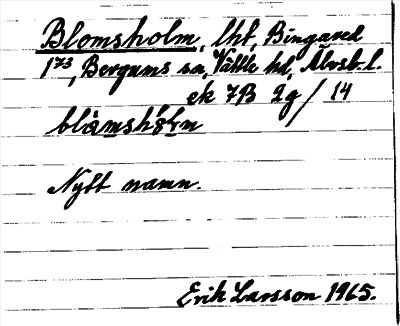 Blomsholm, lht, Bingared
1⁷³, Bergums sn, Vättle hd, Älvsb. l.
ek 7B 2g / 14
blåmshɔl̥m
Nytt namn.
Erik Larsson 1965.